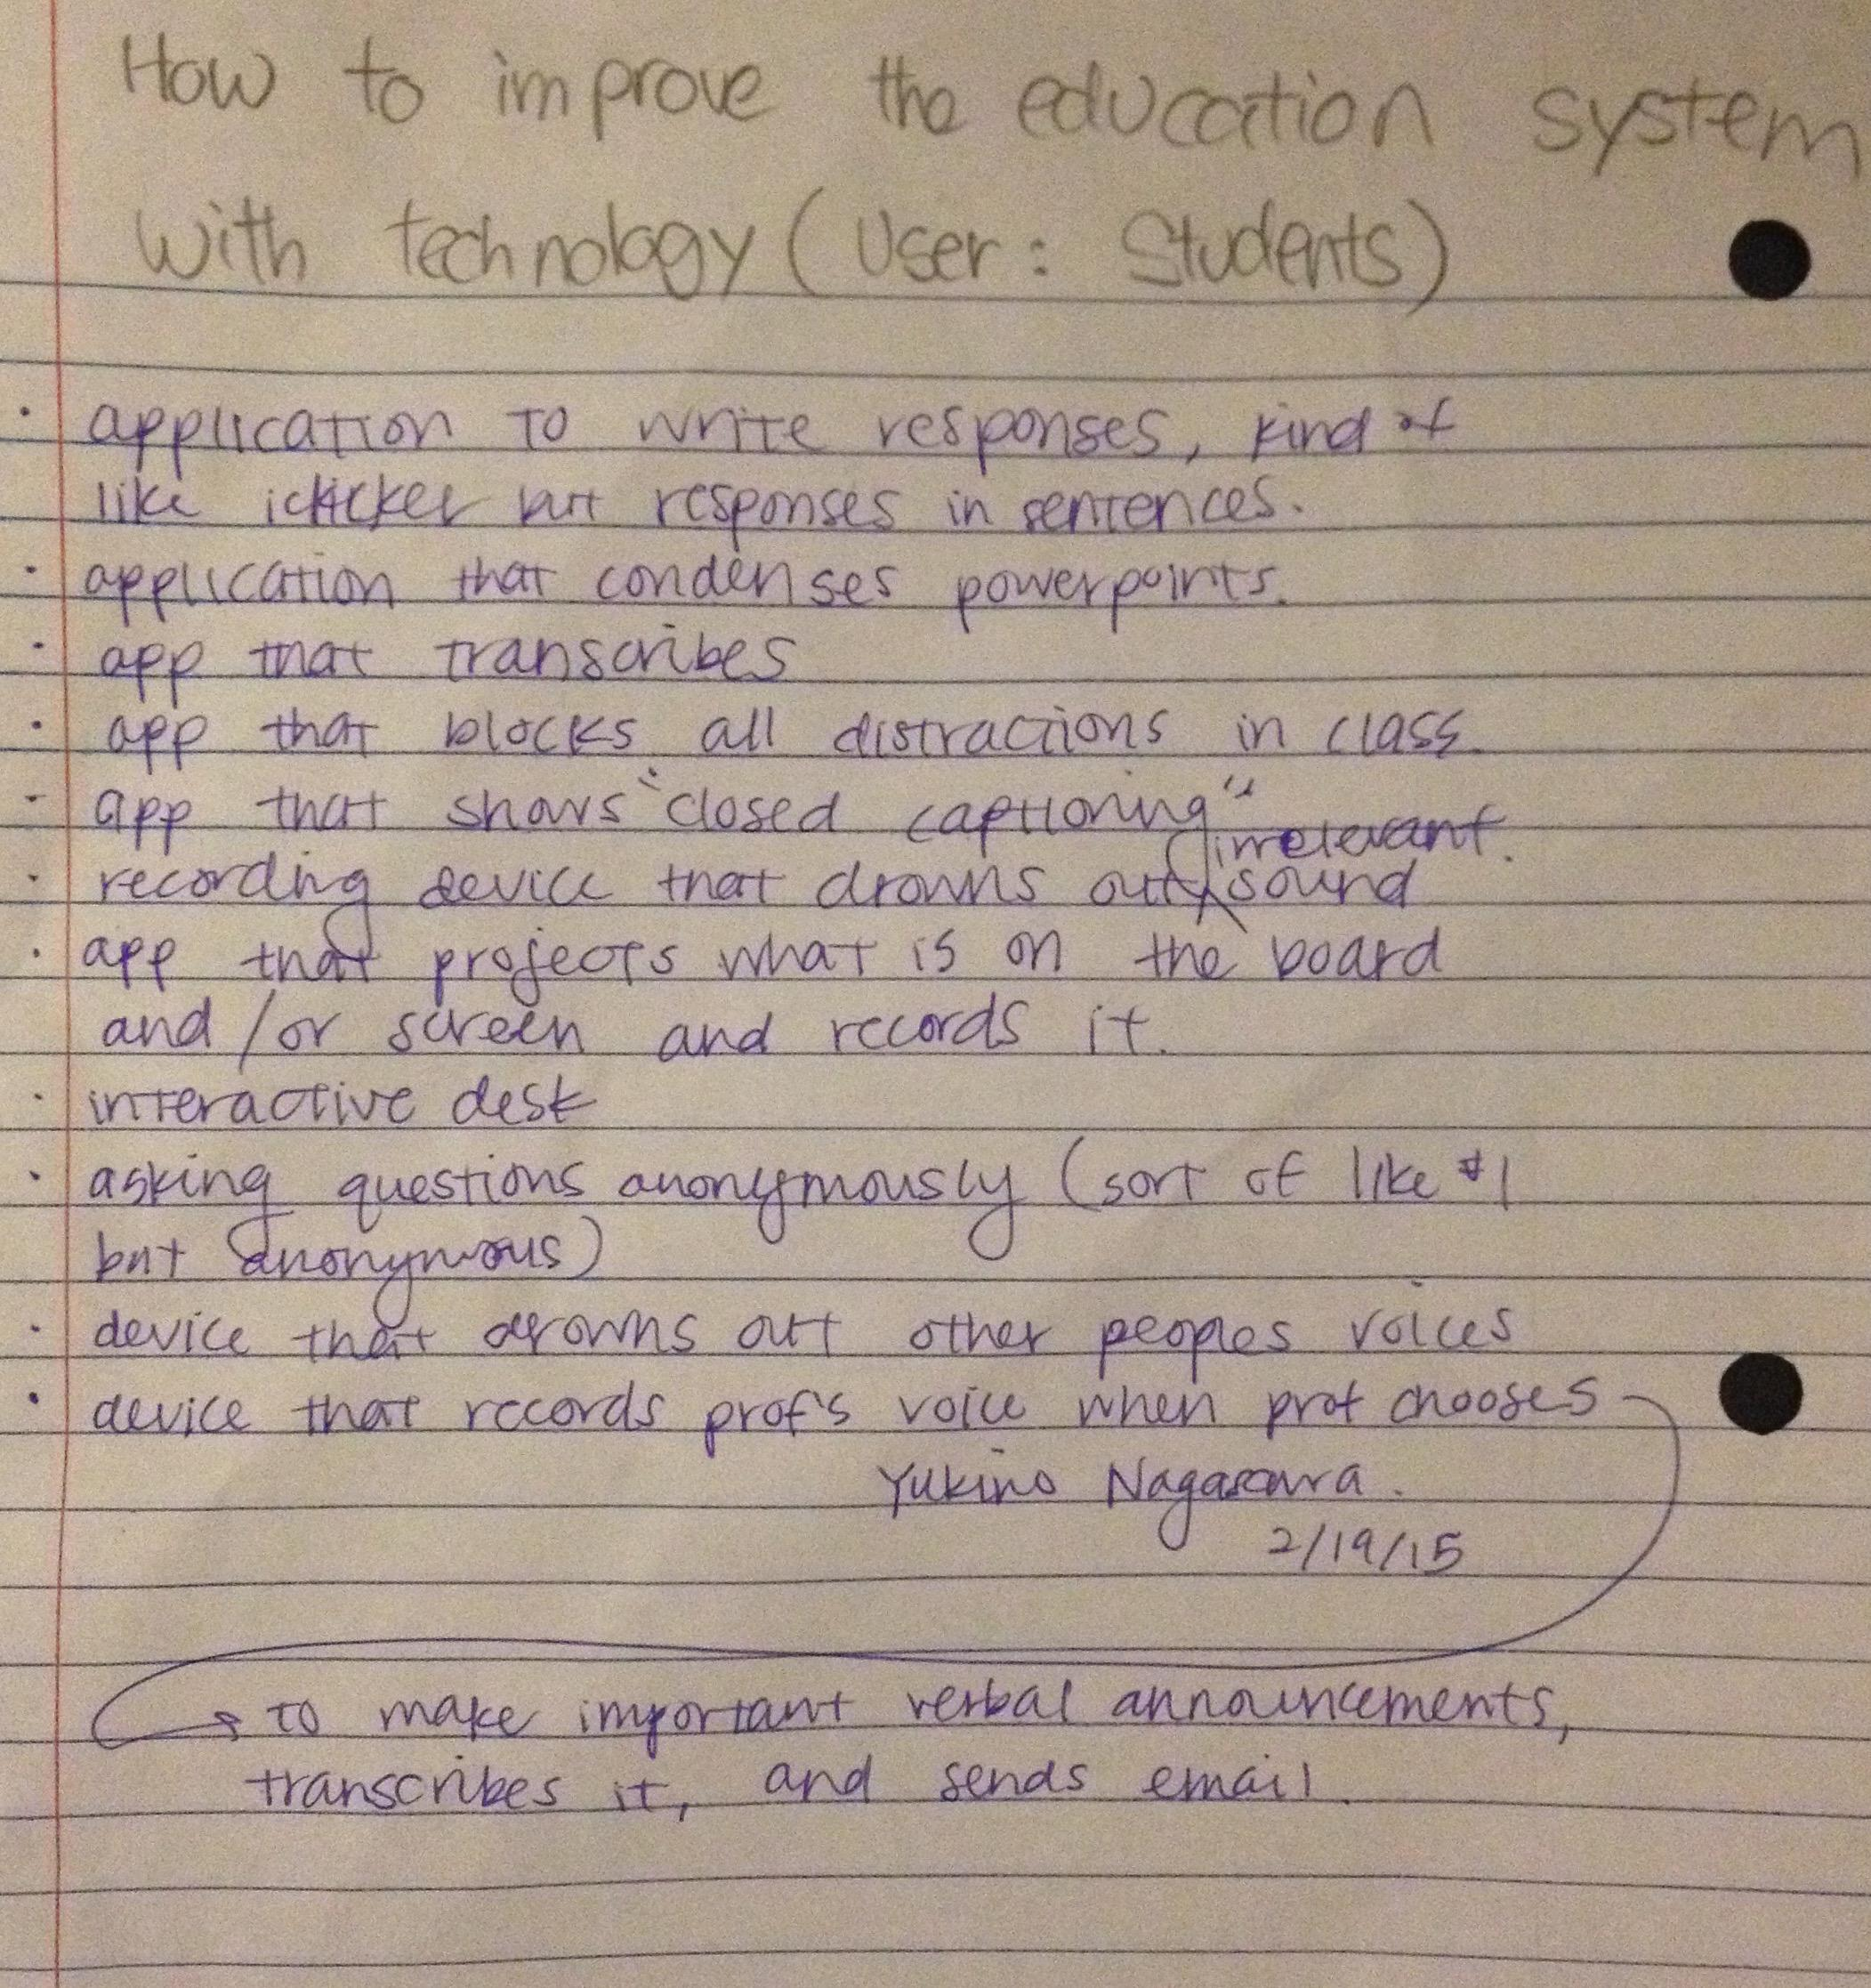 How to improve the education system
with technology (User: Students)
· application to write responses, kind of
like iclicker but responses in sentences.
· application that condenses powerpoints.
· app that transcribes
· app that blocks all distractions in class.
- app that shows "closed captioning"
irrelevant.
· recording device that drowns out sound
· app that projects what is on the board
and/or screen and records it.
· interactive desk
· asking questions anonymously (sort of like #1
but anonymous)
· device that drowns out other peoples voices
· device that records prof's voice when prof chooses
Yukino
2/19/15
→ to make important verbal announcements,
transcribes it, and sends email.